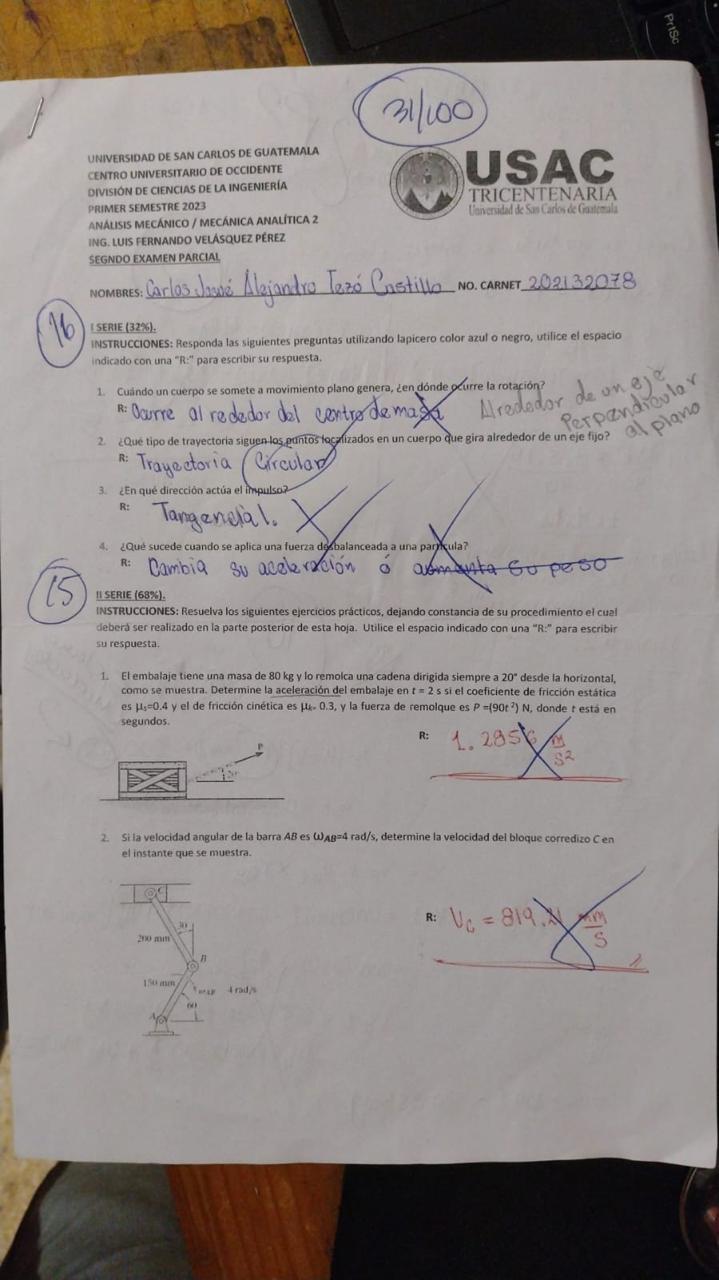 PrtSc
31/100
UNIVERSIDAD DE SAN CARLOS DE GUATEMALA
CENTRO UNIVERSITARIO DE OCCIDENTE
DIVISIÓN DE CIENCIAS DE LA INGENIERÍA
PRIMER SEMESTRE 2023
ANÁLISIS MECÁNICO / MECÁNICA ANALÍTICA 2
ING. LUIS FERNANDO VELÁSQUEZ PÉREZ
SEGNDO EXAMEN PARCIAL
USAC
TRICENTENARIA
Universidad de San Carlos de Guatemala
NOMBRES: Carlos José Alejandro Tezó Castillo NO. CARNET 202132078
16
I SERIE (32%).
INSTRUCCIONES: Responda las siguientes preguntas utilizando lapicero color azul o negro, utilice el espacio
indicado con una "R:" para escribir su respuesta.
1. Cuándo un cuerpo se somete a movimiento plano genera, ¿en dónde ocurre la rotación?
R: Ocurre al rededor del centro de masa
Alrededor de un eje
Perpendicular
al plano
2. ¿Qué tipo de trayectoria siguen los puntos localizados en un cuerpo que gira alrededor de un eje fijo?
R: Trayectoria Circular
3. ¿En qué dirección actúa el impulso?
R: Tangencial.
4. ¿Qué sucede cuando se aplica una fuerza desbalanceada a una partícula?
R: Cambia su aceleración ó aumenta su peso
15
II SERIE (68%).
INSTRUCCIONES: Resuelva los siguientes ejercicios prácticos, dejando constancia de su procedimiento el cual
deberá ser realizado en la parte posterior de esta hoja. Utilice el espacio indicado con una "R:" para escribir
su respuesta.
1. El embalaje tiene una masa de 80 kg y lo remolca una cadena dirigida siempre a 20° desde la horizontal,
como se muestra. Determine la aceleración del embalaje en t = 2 s si el coeficiente de fricción estática
es μs=0.4 y el de fricción cinética es μk= 0.3, y la fuerza de remolque es P =(90t²) N, donde t está en
segundos.
R: 1.2856 m/s²
P
2. Si la velocidad angular de la barra AB es ωAB=4 rad/s, determine la velocidad del bloque corredizo C en
el instante que se muestra.
C
30
200 mm
B
150 mm
4 rad/s
60
A
R: Vc = 819.21 mm/s